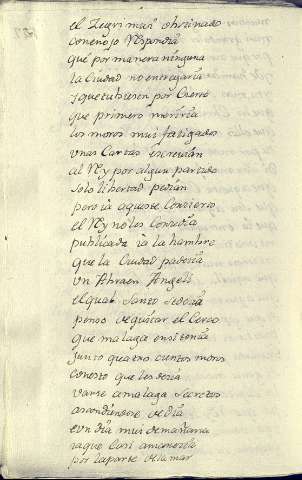 el Zegri mas obstinado
con enojo Respondia
que por manera ninguna
la Ciudad no entregaria
y que tubiesen por Cierto
que primero moriria
los moros mui fatigados
unas Cartas escrevian
al Rey por algun partido
solo libertad pedian
pero ia aqueste Concierto
el Rey no les Consedia
publicada ia la hambre
que la Ciudad padecia
un Abraen Angeli
el qual santo se decia
penso de quitar el Cerco
que malaga ensi tenia
junto quatro cientos moros
Con esto que les decia
vanse a malaga secretos
ascondiendose de dia
e un dia mui de mañana
ia que Casi amanecia
por la parte de la mar